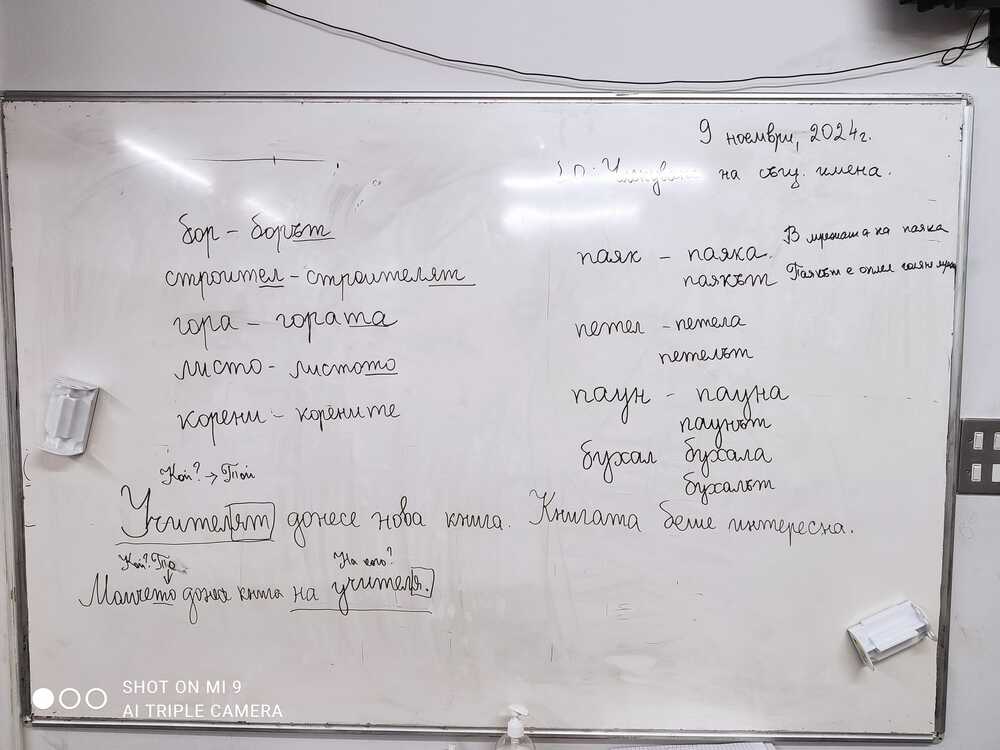 9 ноември, 2024г.
на същ. имена.
бор – борът
строител – строителят
гора – гората
листо – листото
корени – корените
паяк – паяка.
паякът
В мрежата на паяка
Паякът е оплел голяма
петел – петела
петелът
паун – пауна
паунът
бухал бухала
бухалът
Кой? → Той
Учителят донесе нова книга. Книгата беше интересна.
Кой? То
На кого?
Момчето донесе книга на учителя.
SHOT ON MI 9
AI TRIPLE CAMERA